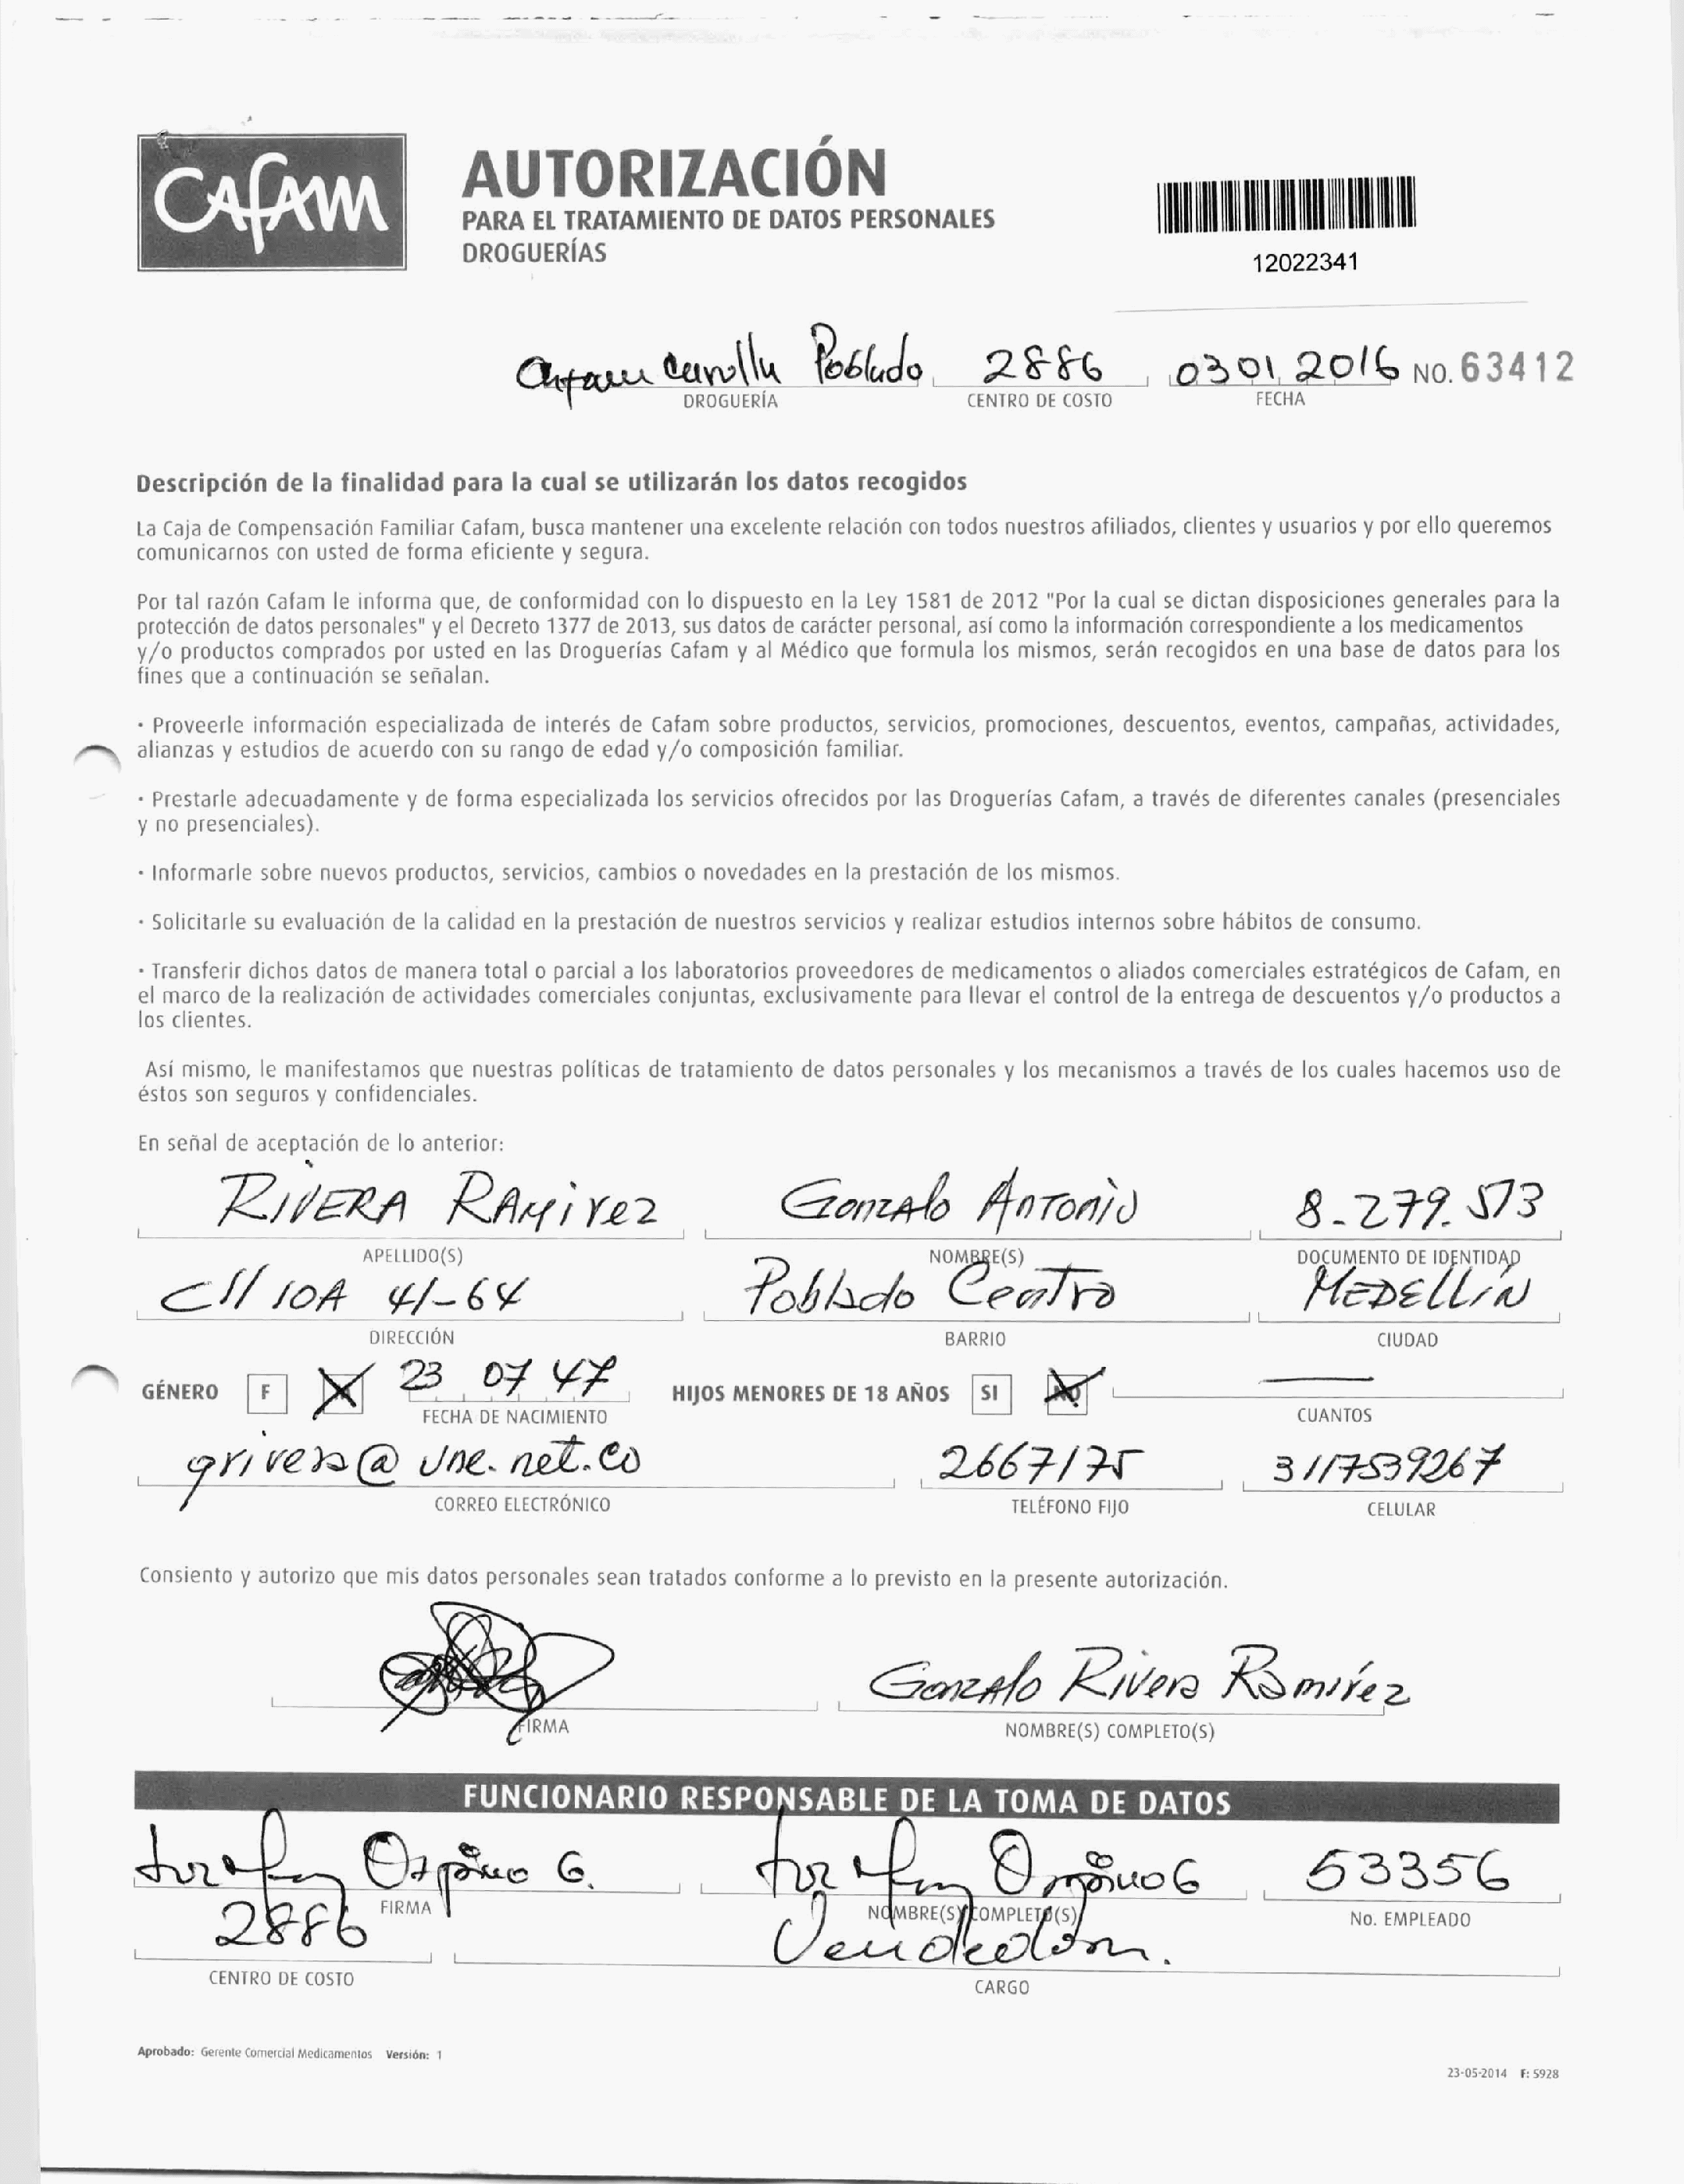 CAFAM
AUTORIZACIÓN
PARA EL TRATAMIENTO DE DATOS PERSONALES
DROGUERÍAS
12022341
Poblado 2886 03 01 2016 NO. 63412
DROGUERÍA CENTRO DE COSTO FECHA
Descripción de la finalidad para la cual se utilizarán los datos recogidos
La Caja de Compensación Familiar Cafam, busca mantener una excelente relación con todos nuestros afiliados, clientes y usuarios y por ello queremos
comunicarnos con usted de forma eficiente y segura.
Por tal razón Cafam le informa que, de conformidad con lo dispuesto en la Ley 1581 de 2012 "Por la cual se dictan disposiciones generales para la
protección de datos personales" y el Decreto 1377 de 2013, sus datos de carácter personal, así como la información correspondiente a los medicamentos
y/o productos comprados por usted en las Droguerías Cafam y al Médico que formula los mismos, serán recogidos en una base de datos para los
fines que a continuación se señalan.
· Proveerle información especializada de interés de Cafam sobre productos, servicios, promociones, descuentos, eventos, campañas, actividades,
alianzas y estudios de acuerdo con su rango de edad y/o composición familiar.
· Prestarle adecuadamente y de forma especializada los servicios ofrecidos por las Droguerías Cafam, a través de diferentes canales (presenciales
y no presenciales).
· Informarle sobre nuevos productos, servicios, cambios o novedades en la prestación de los mismos.
· Solicitarle su evaluación de la calidad en la prestación de nuestros servicios y realizar estudios internos sobre hábitos de consumo.
· Transferir dichos datos de manera total o parcial a los laboratorios proveedores de medicamentos o aliados comerciales estratégicos de Cafam, en
el marco de la realización de actividades comerciales conjuntas, exclusivamente para llevar el control de la entrega de descuentos y/o productos a
los clientes.
Así mismo, le manifestamos que nuestras políticas de tratamiento de datos personales y los mecanismos a través de los cuales hacemos uso de
éstos son seguros y confidenciales.
En señal de aceptación de lo anterior:
RIVERA RAMirez Gonzalo Antonio 8.279.573
APELLIDO(S) NOMBRE(S) DOCUMENTO DE IDENTIDAD
Cll 10A 41-64 Poblado Centro MEDELLIN
DIRECCIÓN BARRIO CIUDAD
GÉNERO F 23 07 47 HIJOS MENORES DE 18 AÑOS SI NO
FECHA DE NACIMIENTO CUANTOS
grivera@une.net.co 2667175 3117539267
CORREO ELECTRÓNICO TELÉFONO FIJO CELULAR
Consiento y autorizo que mis datos personales sean tratados conforme a lo previsto en la presente autorización.
Gonzalo Rivera Ramírez
FIRMA NOMBRE(S) COMPLETO(S)
FUNCIONARIO RESPONSABLE DE LA TOMA DE DATOS
53356
FIRMA NOMBRE(S) COMPLETO(S) No. EMPLEADO
2886 Vendedora.
CENTRO DE COSTO CARGO
Aprobado: Gerente Comercial Medicamentos Versión: 1
23-05-2014 F: 5928